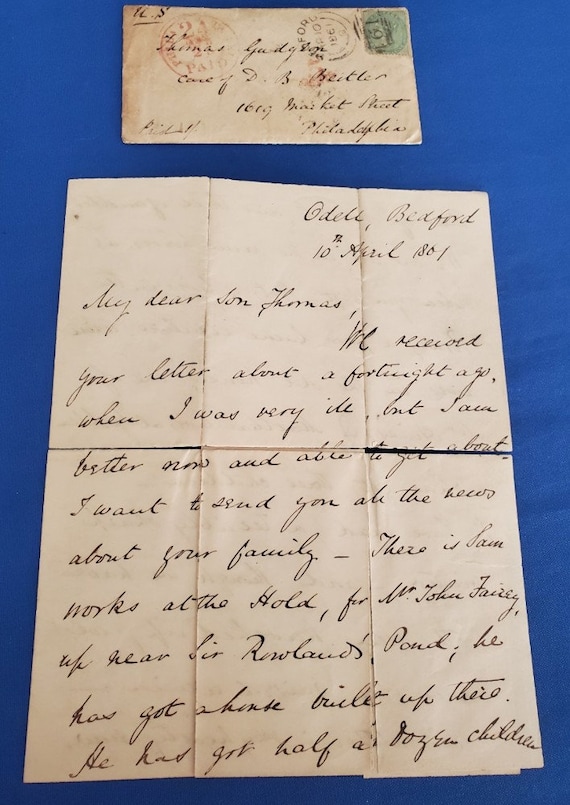 U.S
Thomas Gudgeon
Care of D. B. Beitler
1619 Market Street
Philadelphia
Paid 1/
PAID
161
Odell, Bedford
10th April 1861
My dear Son Thomas,
We received
your letter about a fortnight ago,
when I was very ill, but I am
better now and able to get about.
I want to send you all the news
about your family — There is Sam
works at the Hold, for Mr. John Fairey,
up near Sir Rowland's Pond; he
has got a house built up there.
He has got half a dozen children